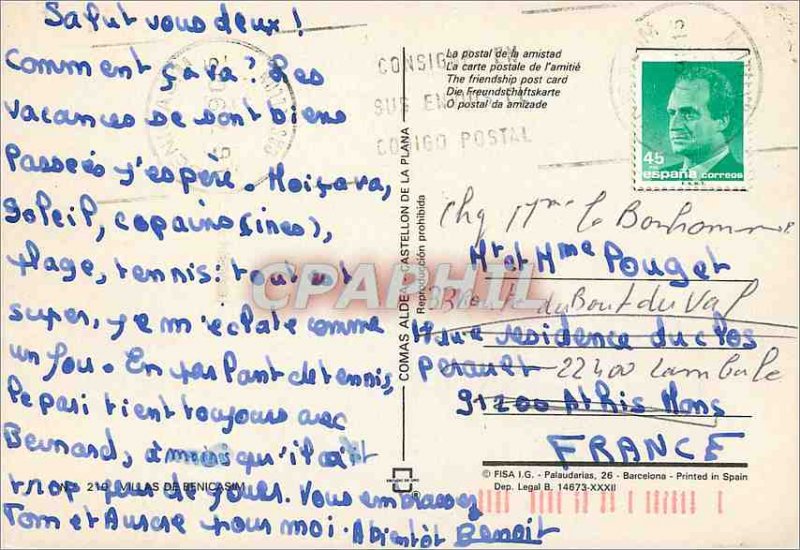 Salut vous deux!
Comment ça va? Les
vacances se sont biens
passées j'espère. Moi ça va,
soleil, copains (ines),
plage, tennis: tout est
super, je m'éclate comme
un fou. En parlant de tennis,
le pari tient toujours avec
Bernard, à moins qu'il ait
trop peur de jouer. Vous embrassez
Tom et Aurore pour moi. A bientôt Benoit
N.º 210 VILLAS DE BENICASIM
COMAS ALDEA - CASTELLON DE LA PLANA
Reproducción prohibida
La postal de la amistad
La carte postale de l'amitié
The friendship post card
Die Freundschaftskarte
O postal da amizade
CONSIGNE EN
SUS ENVIOS
CODIGO POSTAL
45
españa correos
Chq Mme le Bonhomme
Mr et Mme Pouget
33 route du Bout du Val
residence du clos
22400 Lamballe
91200 Athis Mons
FRANCE
© FISA I.G. - Palaudarias, 26 - Barcelona - Printed in Spain
Dep. Legal B. 14673-XXXII
CPAPHIL